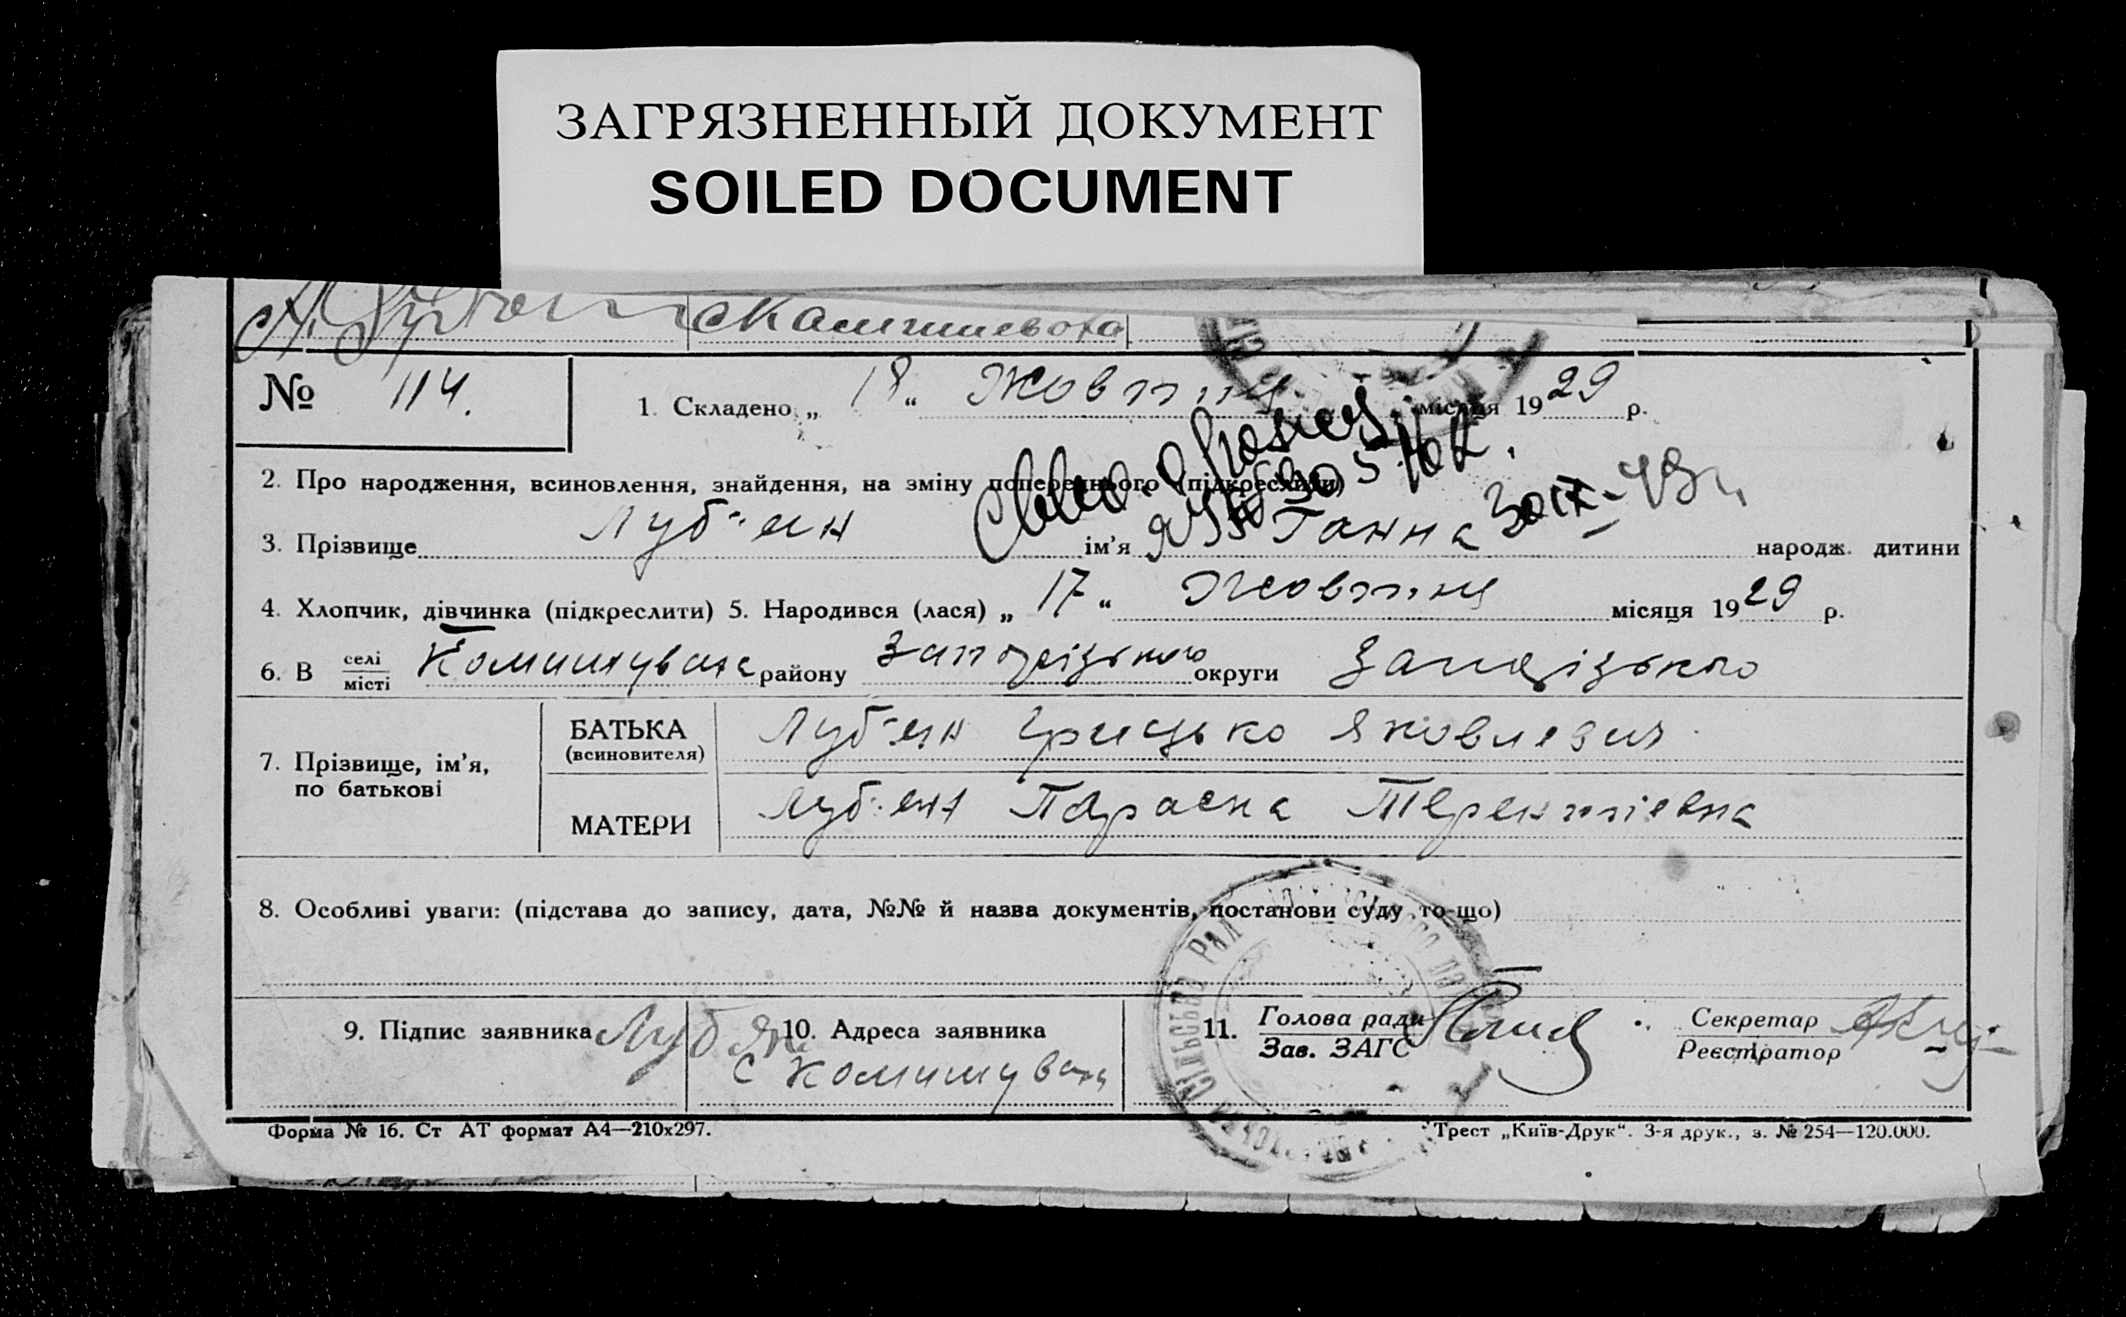 ЗАГРЯЗНЕННЫЙ ДОКУМЕНТ
SOILED DOCUMENT
№ 114.
1. Складено „ 18 " Жовтня місяця 1929 р.
2. Про народження, всиновлення, знайдення, на зміну попереднього (підкреслити)
3. Прізвище Луб'ян ім'я Ганна народж. дитини
4. Хлопчик, дівчинка (підкреслити) 5. Народився (лася) „ 17 " Жовтня місяця 1929 р.
6. В селі
місті Комишуваха району Запорізького округи Запорізького
7. Прізвище, ім'я,
по батькові
БАТЬКА
(всиновителя)
Луб'ян Грицько Яковлевич
МАТЕРИ
Луб'ян Параска Терентіевна
8. Особливі уваги: (підстава до запису, дата, №№ й назва документів, постанови суду то-що)
9. Підпис заявника Луб'ян
10. Адреса заявника
с Комишуваха
11. Голова ради
Зав. ЗАГС
Секретар
Реєстратор
Форма № 16. Ст АТ формат А4—210х297.
Трест „Київ-Друк". 3-я друк., з. № 254—120.000.